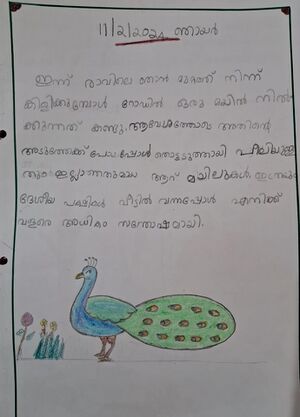 11/2/2024 ഞായർ
ഇന്ന് രാവിലെ ഞാൻ മുറ്റത്ത് നിന്ന്
കളിക്കുമ്പോൾ റോഡിൽ ഒരു മയിൽ നിൽ
ക്കുന്നത് കണ്ടു. ആവേശത്തോടെ അതിന്റെ
അടുത്തേക്ക് പോയപ്പോൾ തൊട്ടടുത്തായി പീലിയുള്ള
തും ഇല്ലാത്തതുമായ ആറ് മയിലുകൾ.
ദേശീയ പക്ഷികൾ വീട്ടിൽ വന്നപ്പോൾ എനിക്ക്
വളരെ അധികം സന്തോഷമായി.